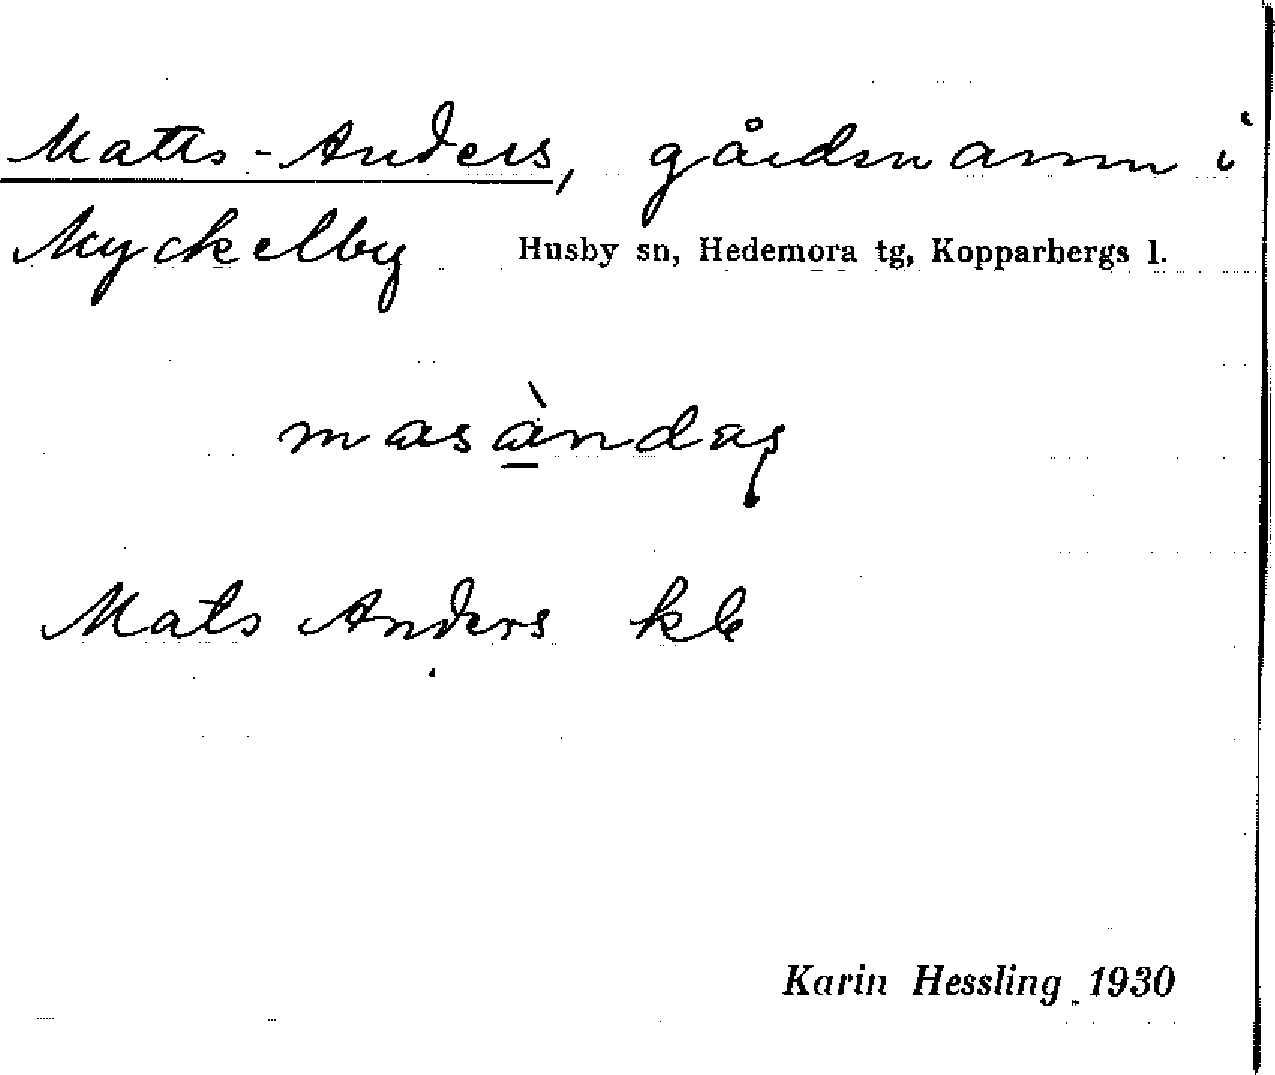 Matts-Anders, gårdsnamn i
Myckelby Husby sn, Hedemora tg, Kopparbergs l.
masàndaş
Mats Anders kb
Karin Hessling 1930